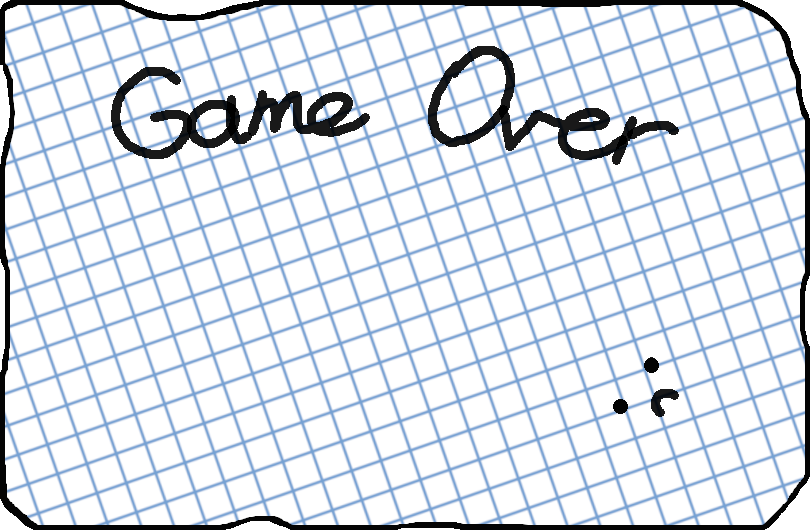 Game Over
:(